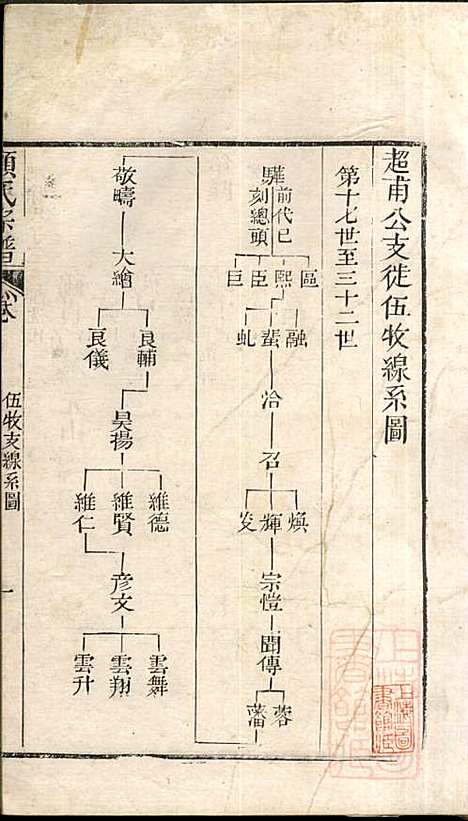 超甫公支徙伍牧線系圖
第十七世至三十二世
驊
前代已
刻總頭
區
熙
臣
巨
融
蜚
虬
洽
召
煥
輝
炗
宗愷
聞傳
蓉
藩
敬疇
大繪
良輔
良儀
昊揚
維德
維賢
維仁
彥文
雲舞
雲翔
雲升
伍牧支線系圖
一